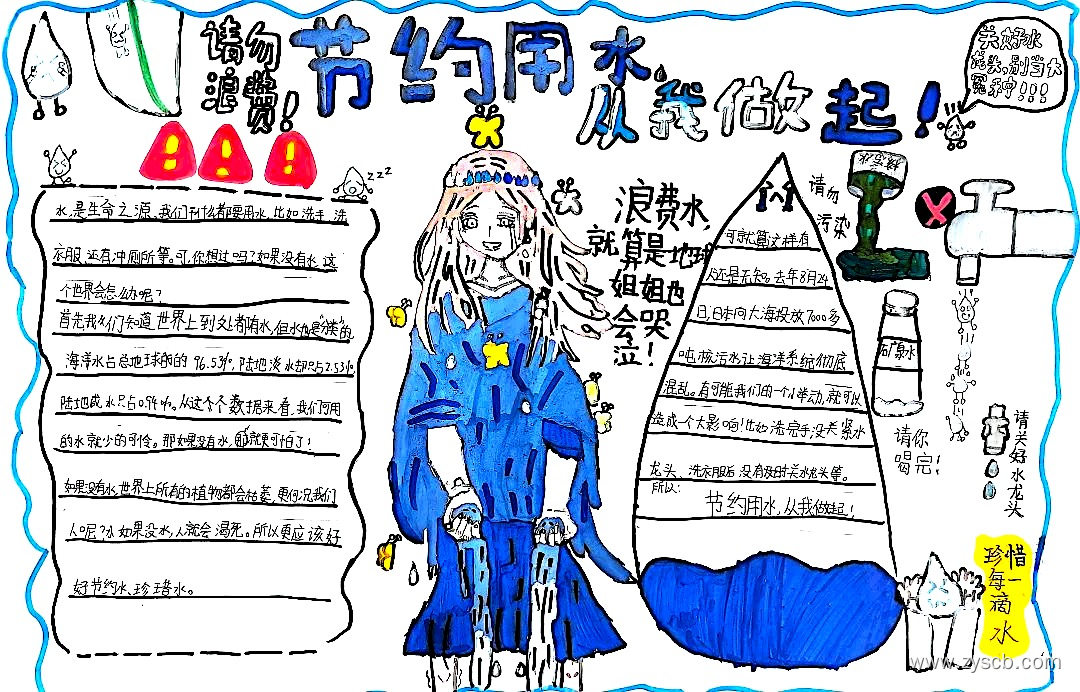 请勿
浪费!
节约用水,
从我做起!
关好水
龙头,别当大
冤种!!!
水,是生命之源,我们干什么都要用水,比如洗手、洗
衣服,还有冲厕所等。可,你想过吗?如果没有水,这
个世界会怎么办呢?
首先我们知道,世界上到处都有水,但水也是
海洋水占总地球的的96.53%,陆地淡水却只占2.53%,
陆地咸水只占0.94%。从这个个数据来看,我们可用
的水就少的可怜。那如果没有水,那就更可怕了!
如果没有水,世界上所有的植物都会枯萎,更何况我们
人呢?如果没水,人就会渴死。所以更应该好
好节约水、珍惜水。
zzz
浪费水,
就算是地球
姐姐也
会哭
泣!
可就算这样有
人还是无知。去年8月24
日,日本向大海投放7000多
吨核污水让海洋系统彻底
混乱。有可能我们的一个小举动,就可以
造成一个大影响!比如:洗完手没关紧水
龙头、洗衣服后没有及时关水龙头等。
所以:
节约用水,从我做起!
请勿
污染
核污水
X
矿泉水
请你
喝完!
请关好水龙头
珍惜
每一
滴
水
www.zyscb.com